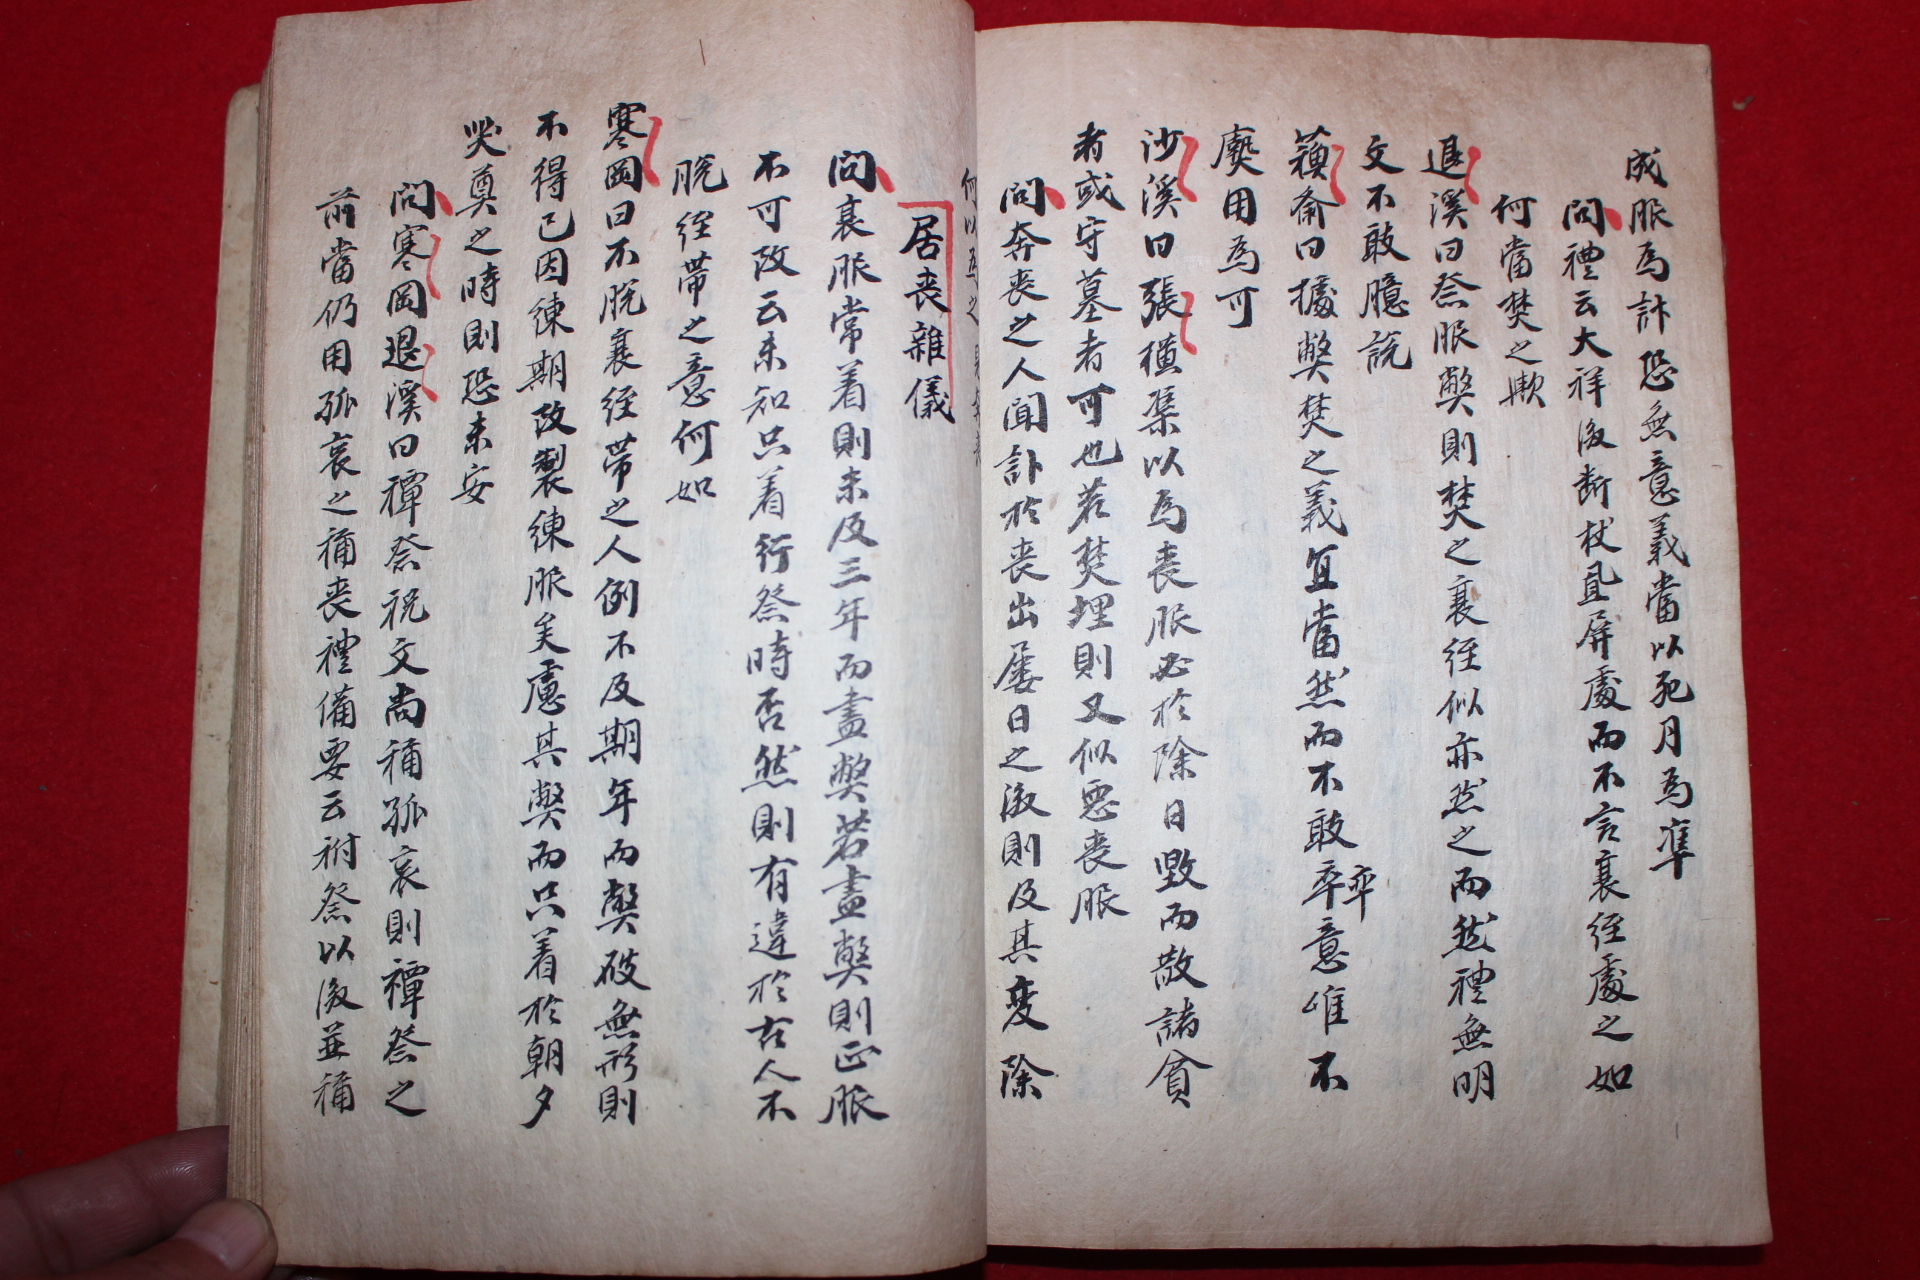 成服爲計恐無意義當以死月爲準
問禮云大祥後断杖且屏處而不言衰絰處之如
何當焚之歟
退溪曰祭服弊則焚之衰絰似亦然之而然禮無明
文不敢臆說
蘋齋曰據弊焚之義宜當然而不敢率意唯不
廢用爲可
沙溪曰張橫渠以爲喪服必於除日毀而散諸貧
者或守墓者可也若焚埋則又似惡喪服
問奔喪之人聞訃於喪出屢日之後則及其変除
何以爲之
居喪雜儀
問衰服常着則未及三年而盡弊若盡弊則正服
不可改云未知只着行祭時否然則有違於古人不
脫絰帶之意何如
寒岡曰不脫衰絰帶之人例不及期年而弊破無形則
不得已因練期改製練服矣慮其弊而只着於朝夕
哭奠之時則恐未安
問寒岡退溪曰禫祭祝文尚稱孤哀則禫祭之
前當仍用孤哀之稱喪禮備要云祔祭以後並稱